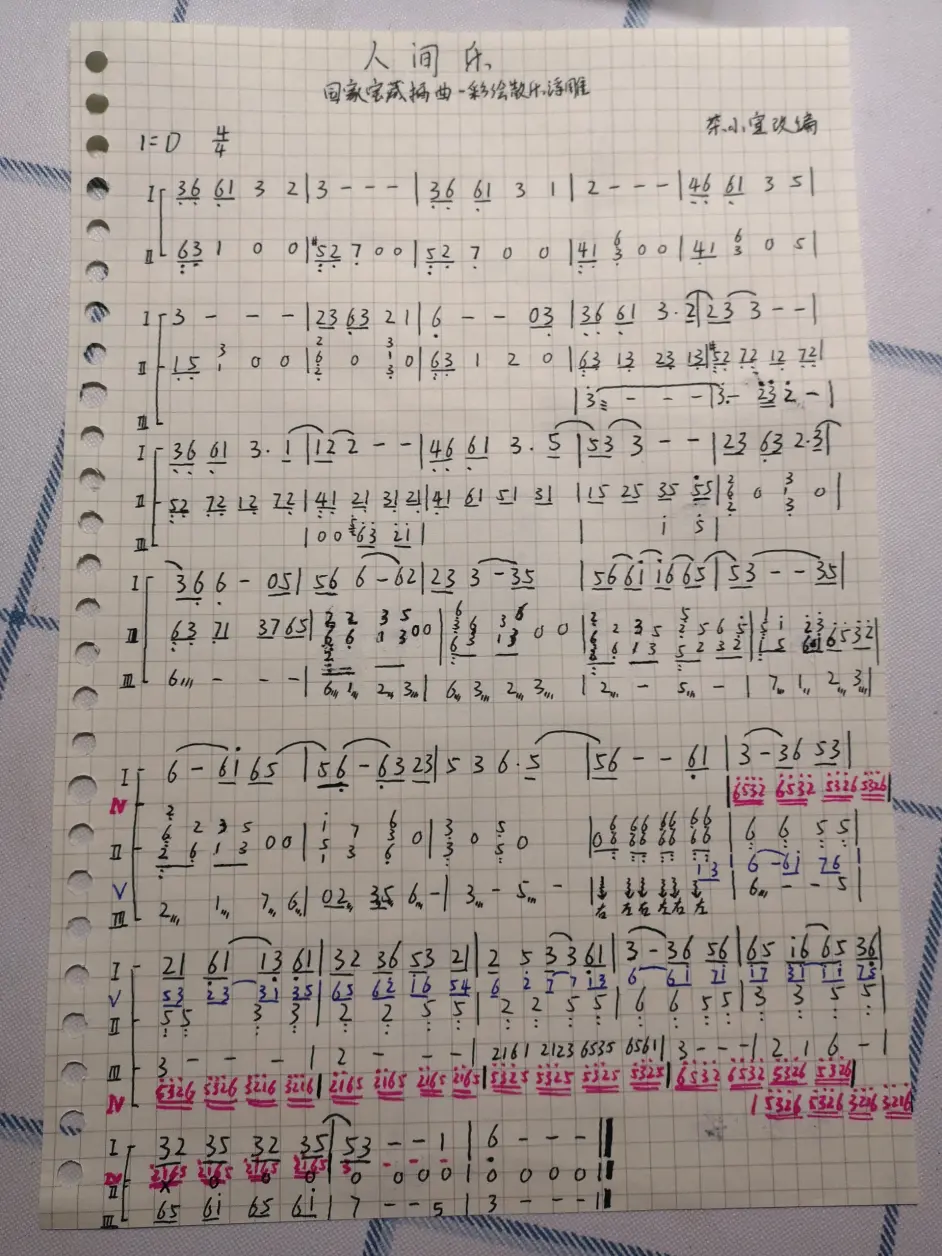 人间乐
国家宝藏插曲-彩绘散乐浮雕
小宝改编
1=D 4/4
I 36 61 3 2 | 3 - - - | 36 61 3 1 | 2 - - - | 46 61 3 5 |
II 63 1 0 0 | #52 7 0 0 | 52 7 0 0 | 41 6/3 0 0 | 41 6/3 0 5 |
I 3 - - - | 23 63 2 1 | 6 - - 03 | 36 61 3·2 | 23 3 - - |
II 15 3/1 0 0 | 2/6/2 0 3/1/3 0 | 63 1 2 0 | 63 13 23 13 | #52 72 12 72 |
III | 3 - - - | 3 - 23 2 - |
I 36 61 3·1 | 12 2 - - | 46 61 3·5 | 53 3 - - | 23 63 2·3 |
II 52 72 12 72 | 41 21 31 21 | 41 61 51 31 | 15 25 35 55 | 3/6/2 0 3/1/3 0 |
III | 0 0 63 21 | | i 5 |
I 36 6 - 05 | 56 6 - 62 | 23 3 - 35 | 56 6i i6 65 | 53 - - 35 |
63 71 3765
III 6 - - - | 6 1 2 3 | 6 3 2 3 | 2 - 5 - | 7 1 2 3 |
I 6 - 6i 65 | 56 - 63 23 | 5 3 6·5 | 56 - - 61 | 3 - 36 53 |
IV | 6532 6532 5326 5326 |
II
V 13 | 6 - 6i 76 |
III 2 1 7 6 | 02 35 6 - | 3 - 5 - | 左 左左 左右 左 | 6 - - 5 |
I 21 61 13 61 | 32 36 53 21 | 2 5 33 61 | 3 - 36 56 | 65 i6 65 36 |
V 53 23 31 35 | 65 62 16 54 | 6 2 7 7 13 | 6 61 21 | 17 31 11 75 |
II 5 5 3 3 | 2 2 5 5 | 2 2 5 5 | 6 6 5 5 | 3 3 5 5 |
III 3 - - - | 2 - - - | 2161 2123 6535 6561 | 3 - - - | 2 1 6 - |
IV 5326 5326 3216 3216 | 2165 2165 2165 2165 | 5325 5325 5325 5325 | 6532 6532 5326 5326 |
| 5326 5326 3216 3216
I 32 35 32 35 | 53 - - 1 | 6 - - - ‖
IV 2165 2165 2165 2165 3 - - -
II 0 0 0 | 0 0 0 0 | 0 0 0 0 ‖
III 65 6i 65 6i | 7 - - 5 | 3 - - - ‖